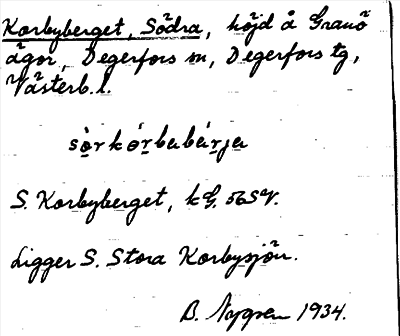 Korbyberget, Södra, höjd å Granö
ägor, Degerfors sn, Degerfors tg,
Västerb. l.
S. Korbyberget, 56SV.
Ligger S. Stora Korbysjön.
B. Nygren 1934.